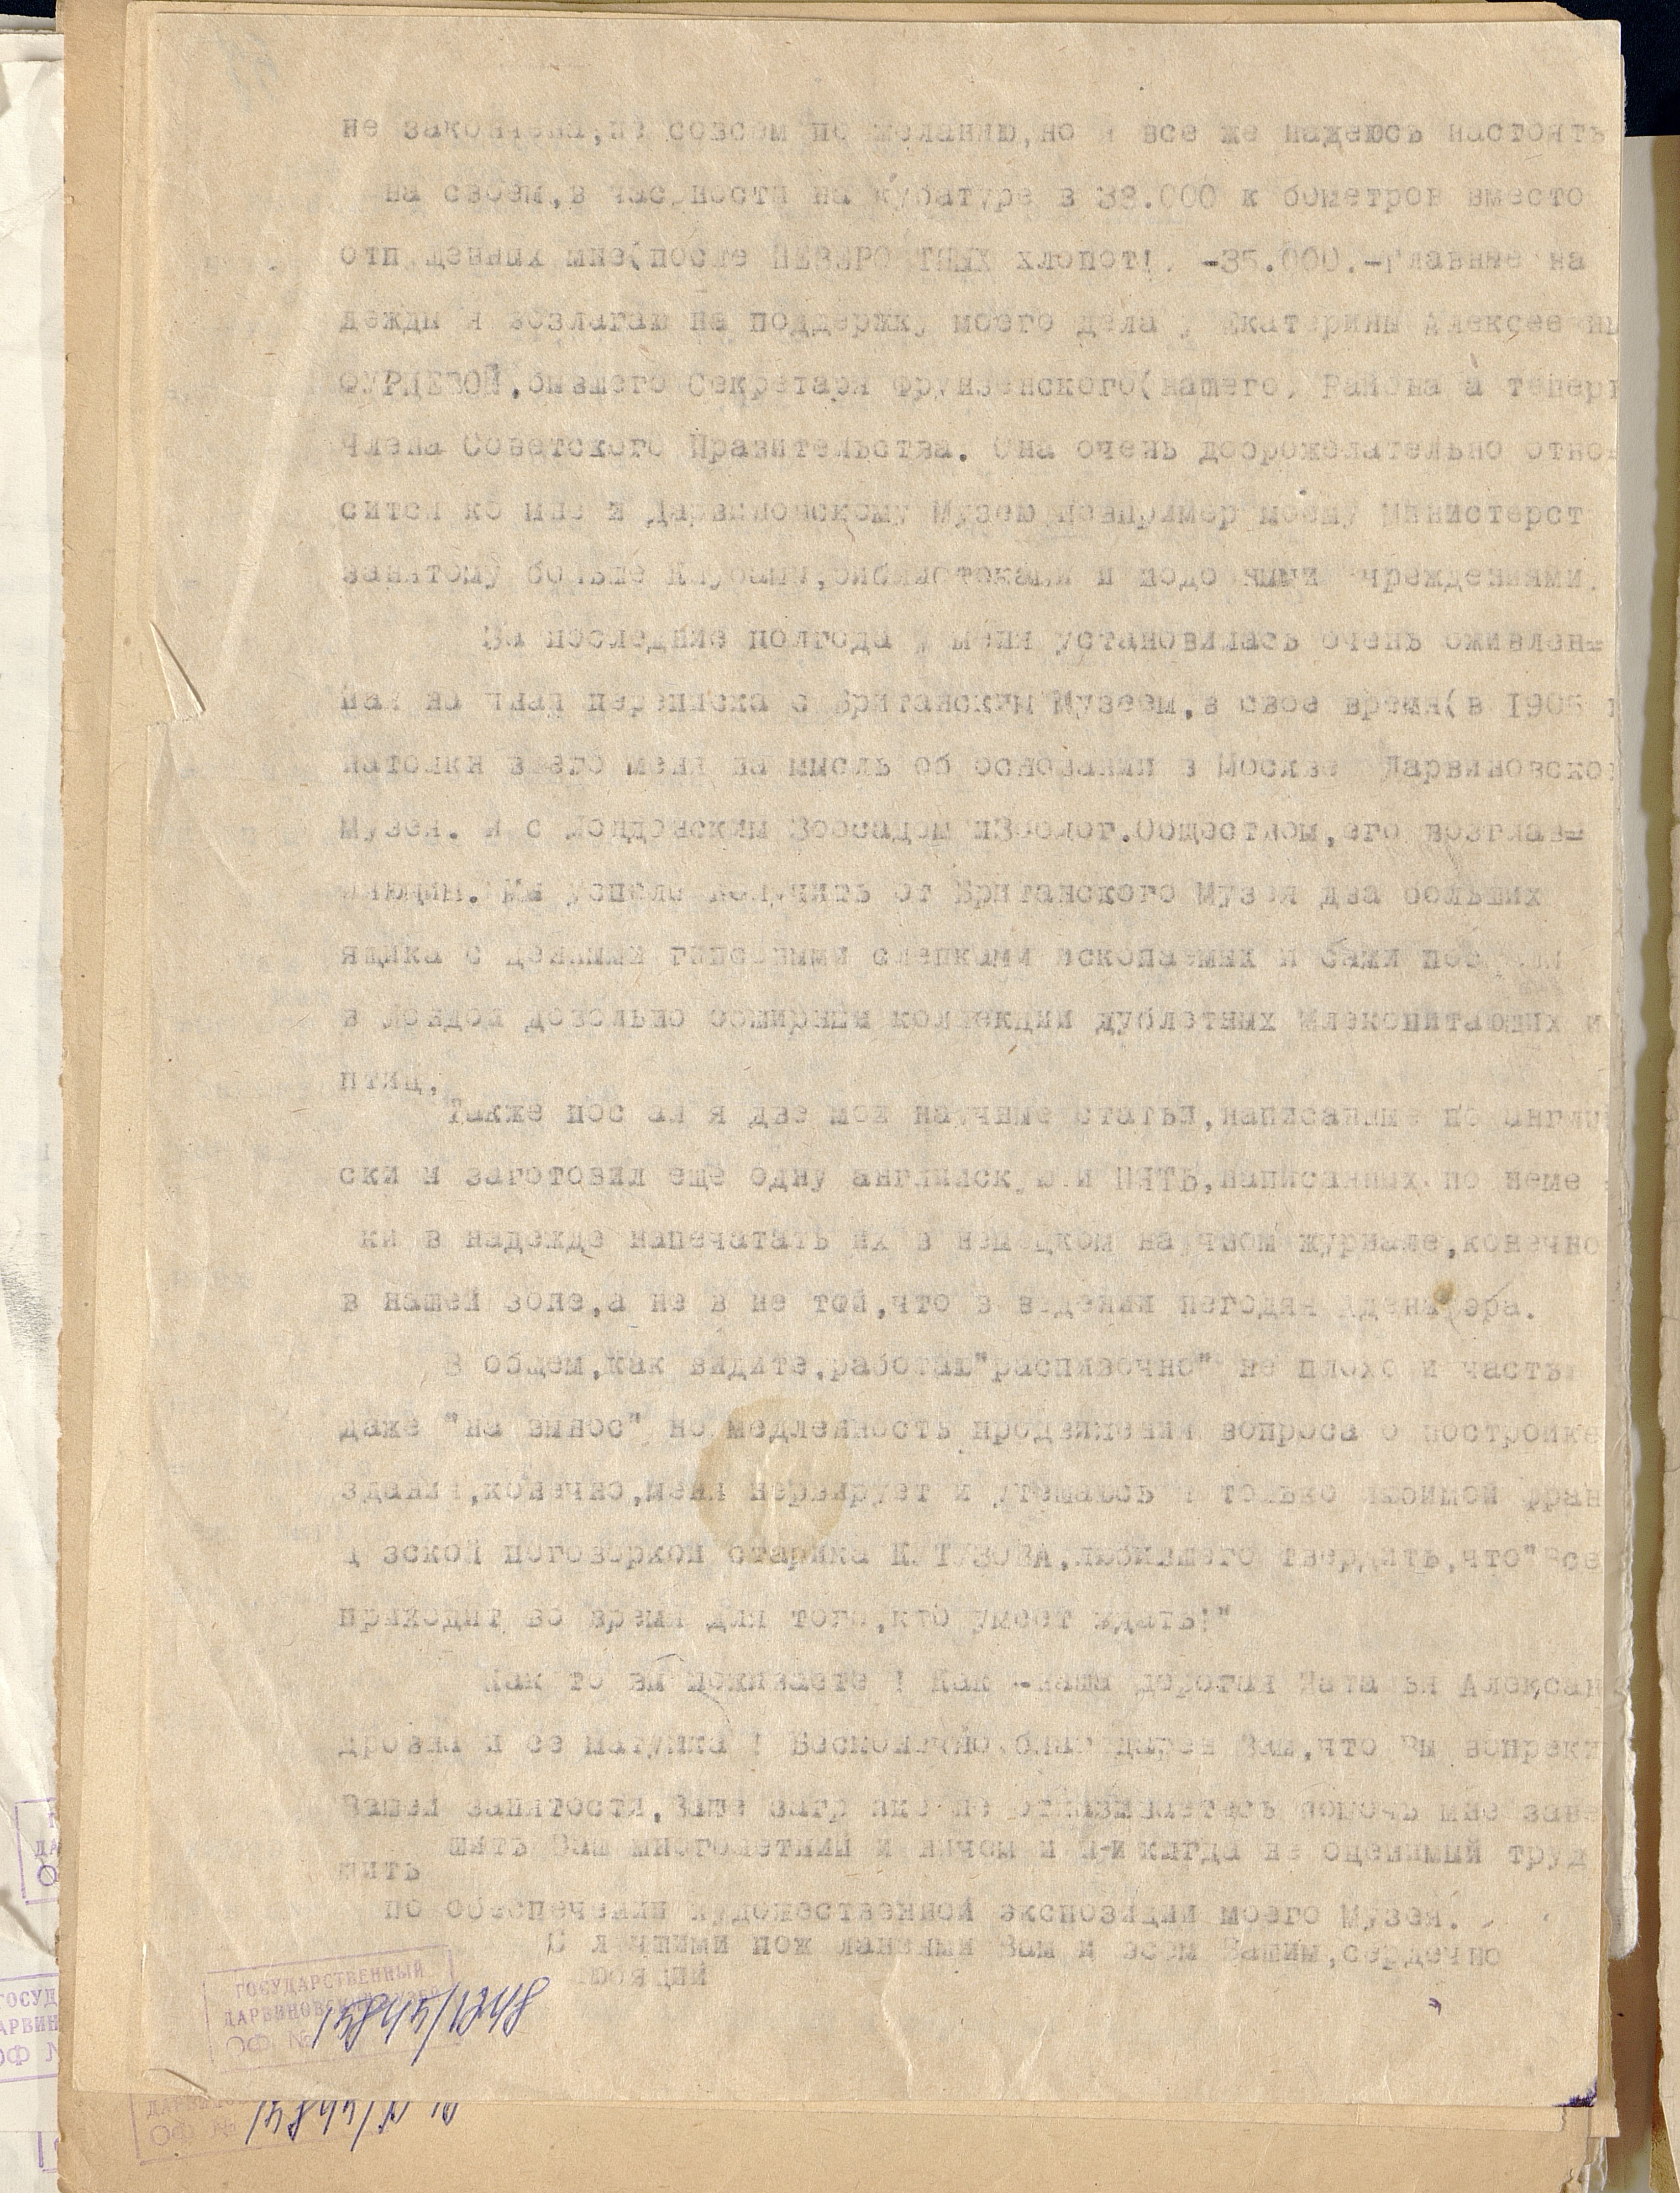 не закончена,не совсем по желанию,но я все же надеюсь настоять
на своем,в час ности на кубатуре в 38.000 к бометров вместо
отп щенных мне(после НЕВЕРО ТНЫХ хлопот! -35.000.-Главные на
дежды я возлагаю на поддержку моего дела у Екатерины Алексее ны
ФУРЦЕВОЙ,бывшего Секретаря Фрунзенского(нашего) Района а теперь
Члена Советского Правительства. Она очень доброжелательно отно
сится ко мне и Дарвиновскому Музею моему Министерст
занятому больше Клубами,библиотеками и подо ными чреждениями.
За последние полгода у меня установилась очень оживлен=
ная на чная переписка с Британским Музеем,в свое время(в 1905 г
натолкн вшего меня на мысль об основании в Москве Дарвиновско
Музея. и с Лондонским Зоосадом иЗоолог.Обществом,его возглав=
ляющим. Мы успели получить от Британского Музея два больших
ящика с ценными гипсовыми слепками ископаемых и
в Лондон довольно обширные коллекции дублетных Млекопитающих и
птиц.
Также пос ал я две мои научные статьи,написанные по англи
ски и заготовил еще одну английск ю и ПЯТЬ,написанных по неме
ки в надежде напечатать их в немецком на чном журнале,конечно
в нашей зоне,а не в не той,что в ведении негодяя Аденауэра.
В общем,как видите,работаю"распивочно" не плохо и часть
даже "на вынос" но медленность продвижения вопроса о постройке
здания,конечно,меня нервирует и утешаюсь я только любимой фран
ц зской поговоркой старика КУТУЗОВА,любившего твердить,что"все
приходит во время для того,кто умеет ждать!"
Как то вы поживаете ! Как -наша дорогая Ната ья Алексан
дровна и ее матушка ! Бесконечно благодарен Вам,что Вы вопреки
Вашей занятости, не отказываетесь помочь мне заве
шить Ваш многолетний и ничем и н-и кигда не оценимый труд
шить
по обеспечении художественной экспозиции моего Музея.
С л чшими пож ланиями Вам и всем Вашим,сердечно
ГОСУДАРСТВЕННЫЙ
ДАРВИНОВСКИЙ МУЗЕЙ
ОФ № 15845/1248
ОФ №